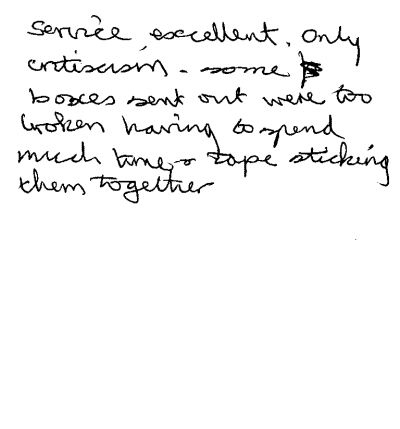 Service excellent. Only
critiscism - some
boxes sent out were too
broken having to spend
much time & tape sticking
them together